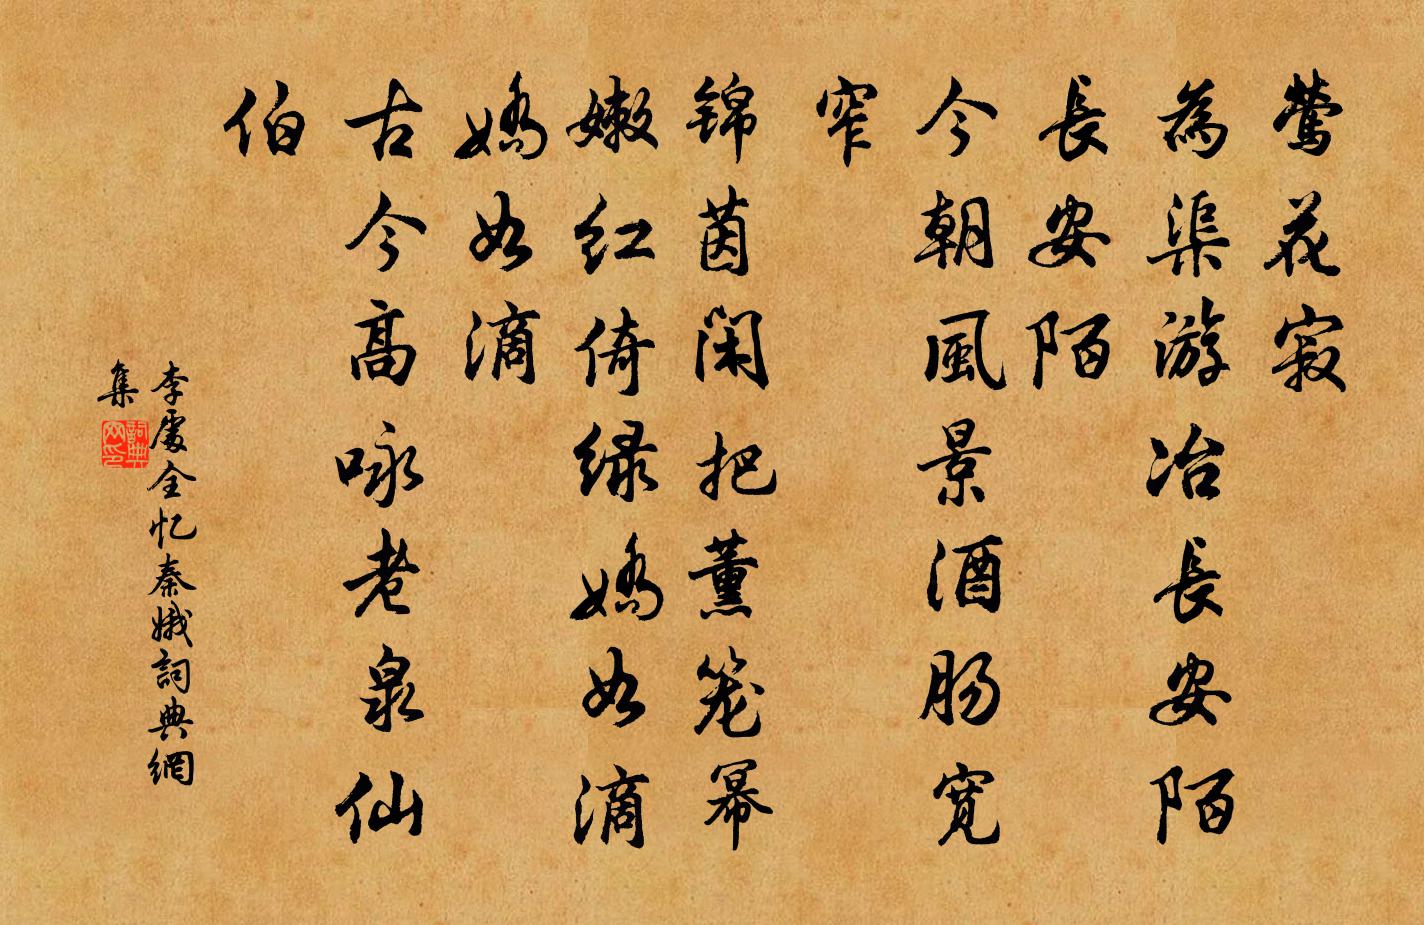 鶯花寂
為渠游冶長安陌
長安陌
今朝風景酒肠寛
窄
锦茵闲把薰笼幂
嫩红倚绿嬌如滴
嬌如滴
古今高咏老泉仙
伯
李處全忆秦娥詞典網
集
詞典
网印